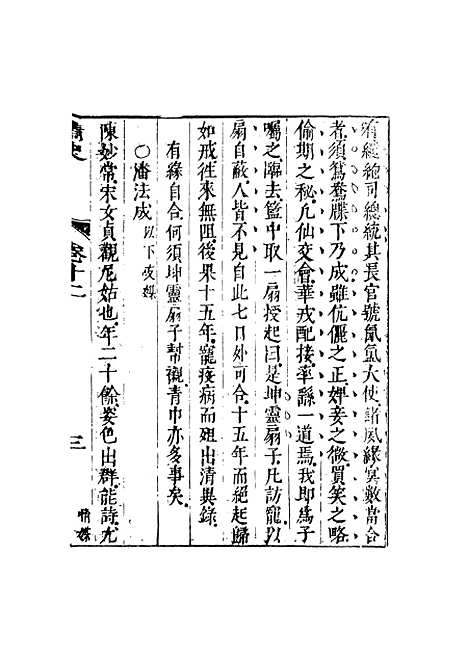 有繾綣司總統其長官號氤氳大使諸夙緣冥數當合
者須鴛鴦牒下乃成雖伉儷之正婢妾之微買笑之略
偷期之秘凡仙交會華戎配接率繇一道焉我即爲子
囑之臨去籃中取一扇授起曰是坤靈扇子凡訪寵以
扇自蔽人皆不見自此七日外可合十五年而絕起歸
如戒往來無阻後果十五年寵疫病而殂出清異錄
有緣自合何須坤靈扇子幫襯青巾亦多事矣
○潘法成 以下友媒
陳妙常宋女貞觀尼姑也年二十餘姿色出群能詩尤
情史
卷十二
三
情媒